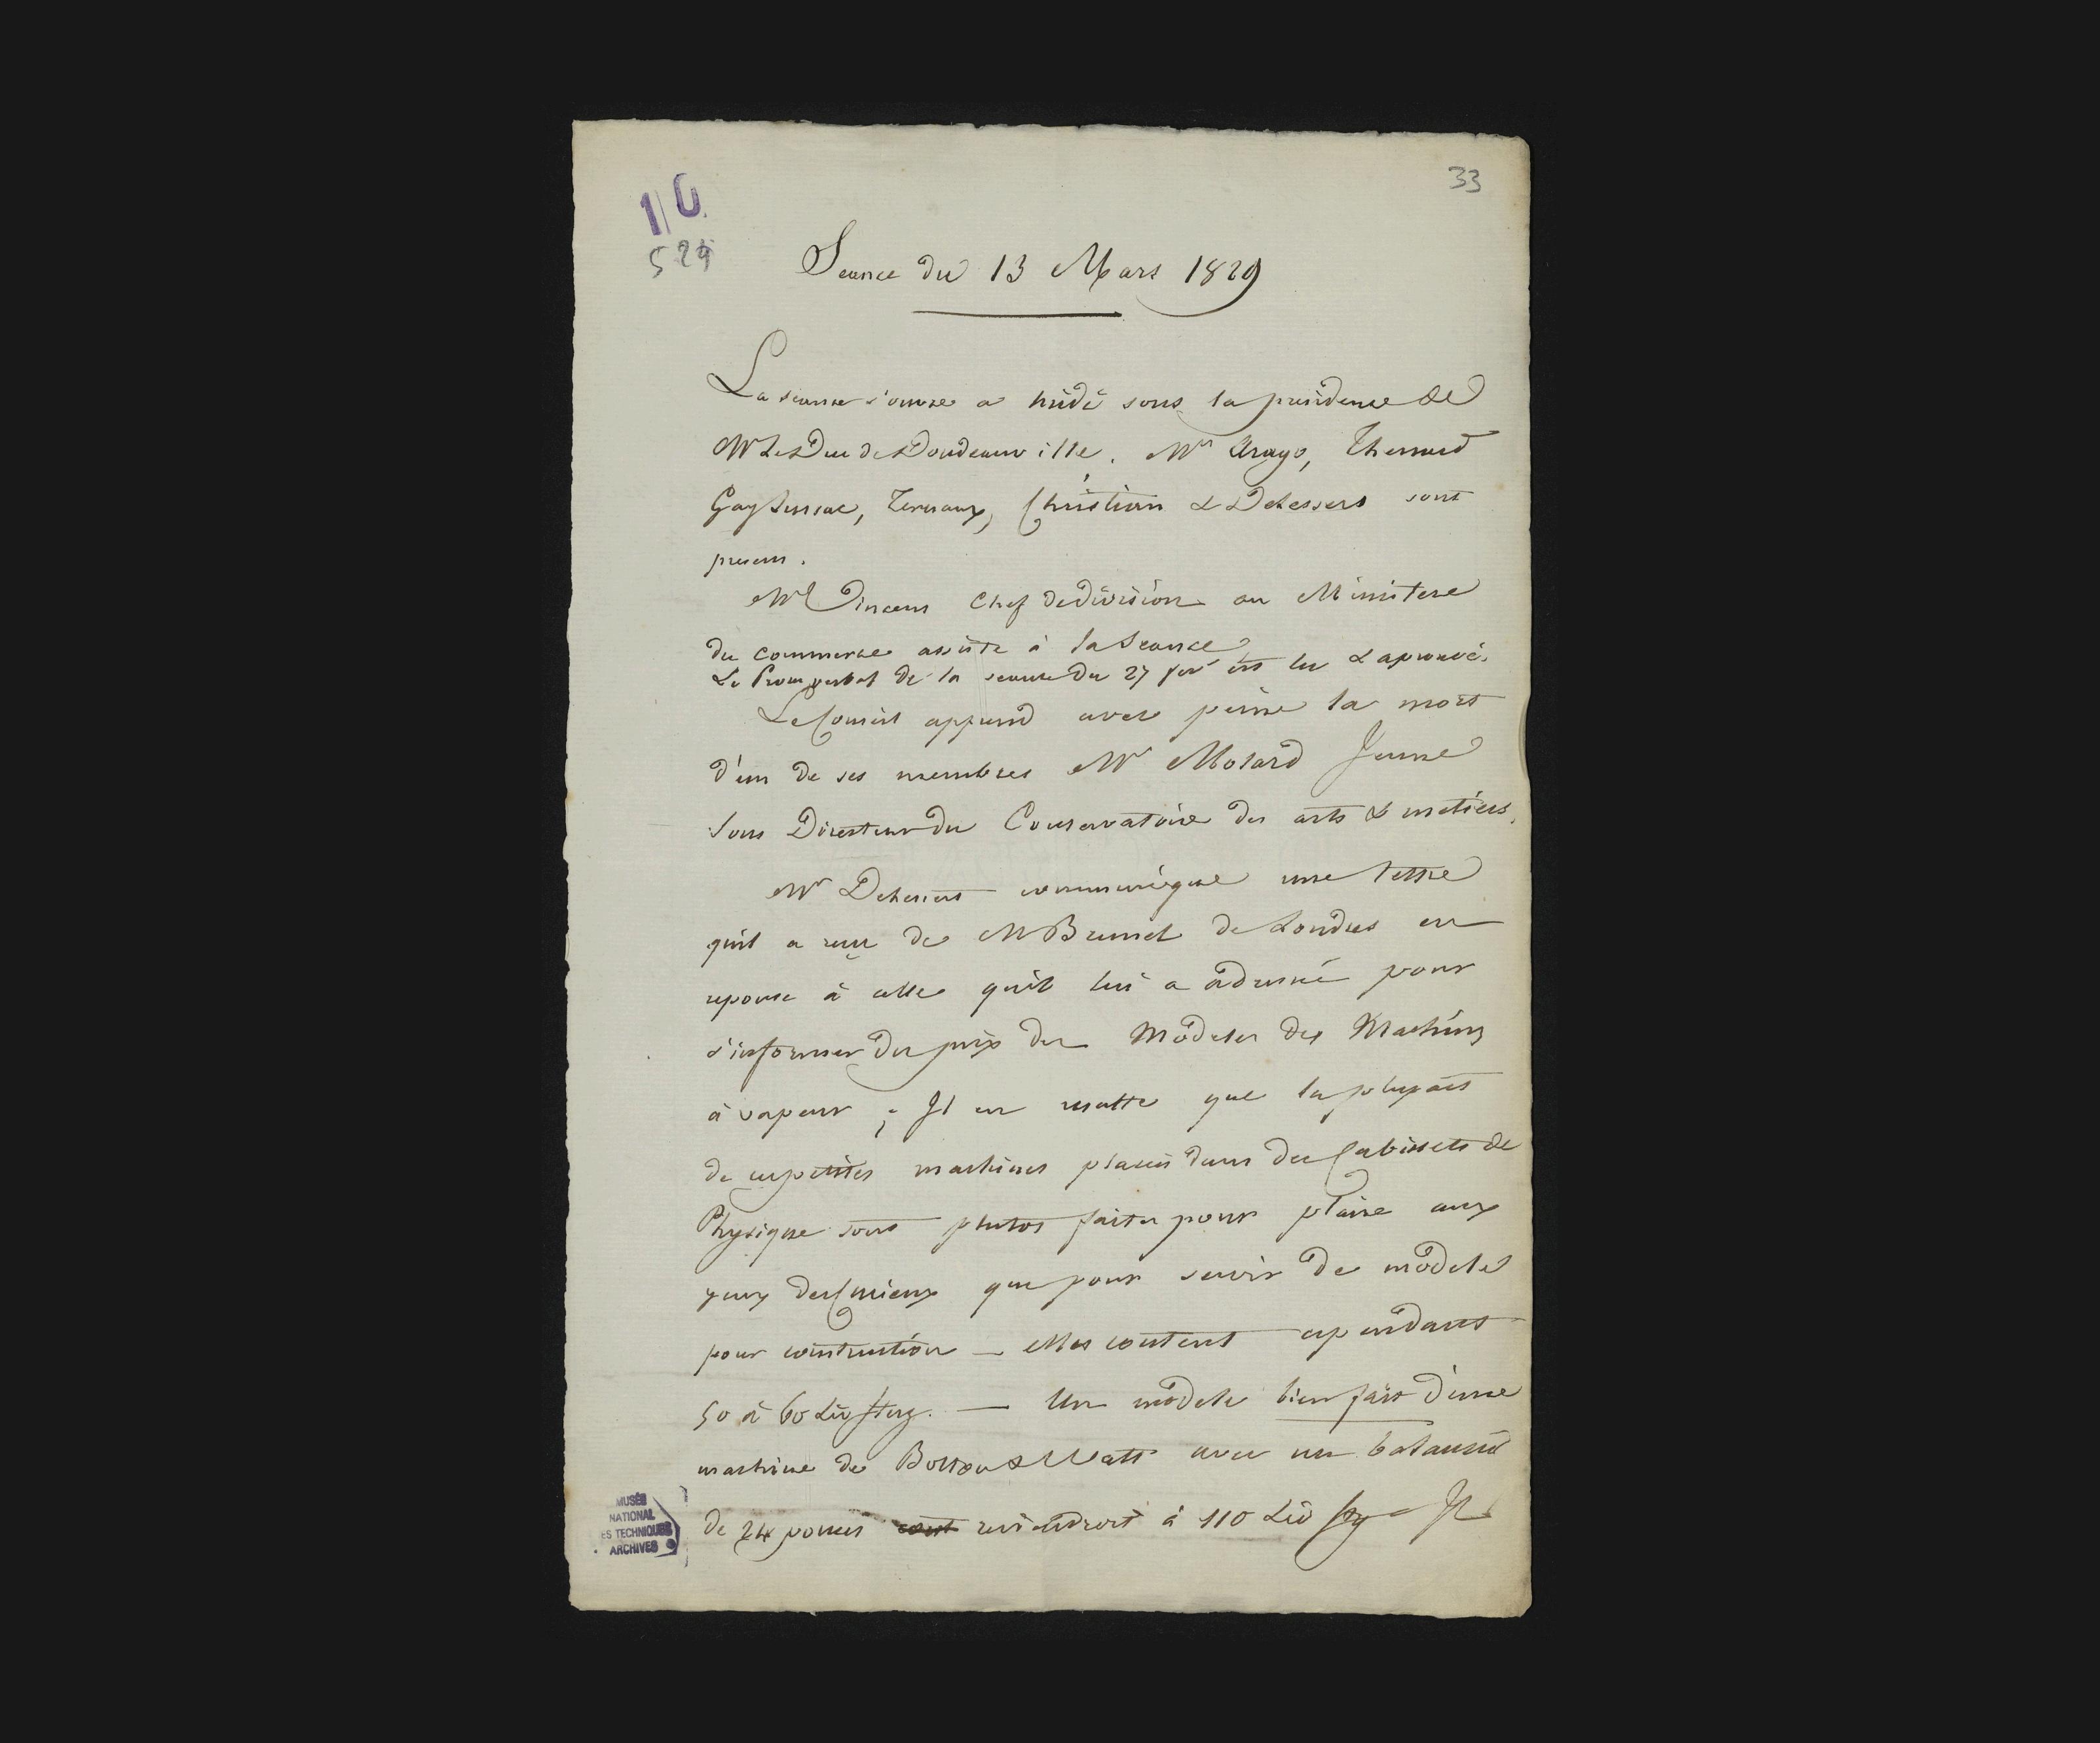 33
10
524
Seance du 13 Mars 1829
La séance s'ouvre a midi sous la presidence de
Mr Le Duc de Doudeauville. Mrs Arago, Thenard
Gay Lussac, Ternaux, Christian & Delessert sont
presens.
Mr Vincens Chef de division au Ministere
du commerce assiste à la Seance
Le Proces verbal de la seance du 27 fevr est lu & aprouvé.
Le Conseil apprend avec peine la mort
d'un de ses membres Mr Molard Jeune
Sous Directeur du Conservatoire des arts & metiers.
Mr Delessert communique une lettre
qu'il a reçu de M Brunel de Londres en
reponse à celle qu'il lui a adressé pour
s'informer du prix des Modeles des Machines
à vapeur ; Il en resulte que la plupart
de ces petites machines placées dans des Cabinets de
Physique sont plutot faites pour plaire aux
yeux des Curieux que pour servir de modele
pour construction — elles coutent cependant
50 à 60 Liv Sterg. — Un modele bien fait d'une
machine de Bolton & Watt avec un balancier
de 24 pouces cout reviendroit à 110 Liv Stg – Il
MUSÉE
NATIONAL
ES TECHNIQUES
ARCHIVES